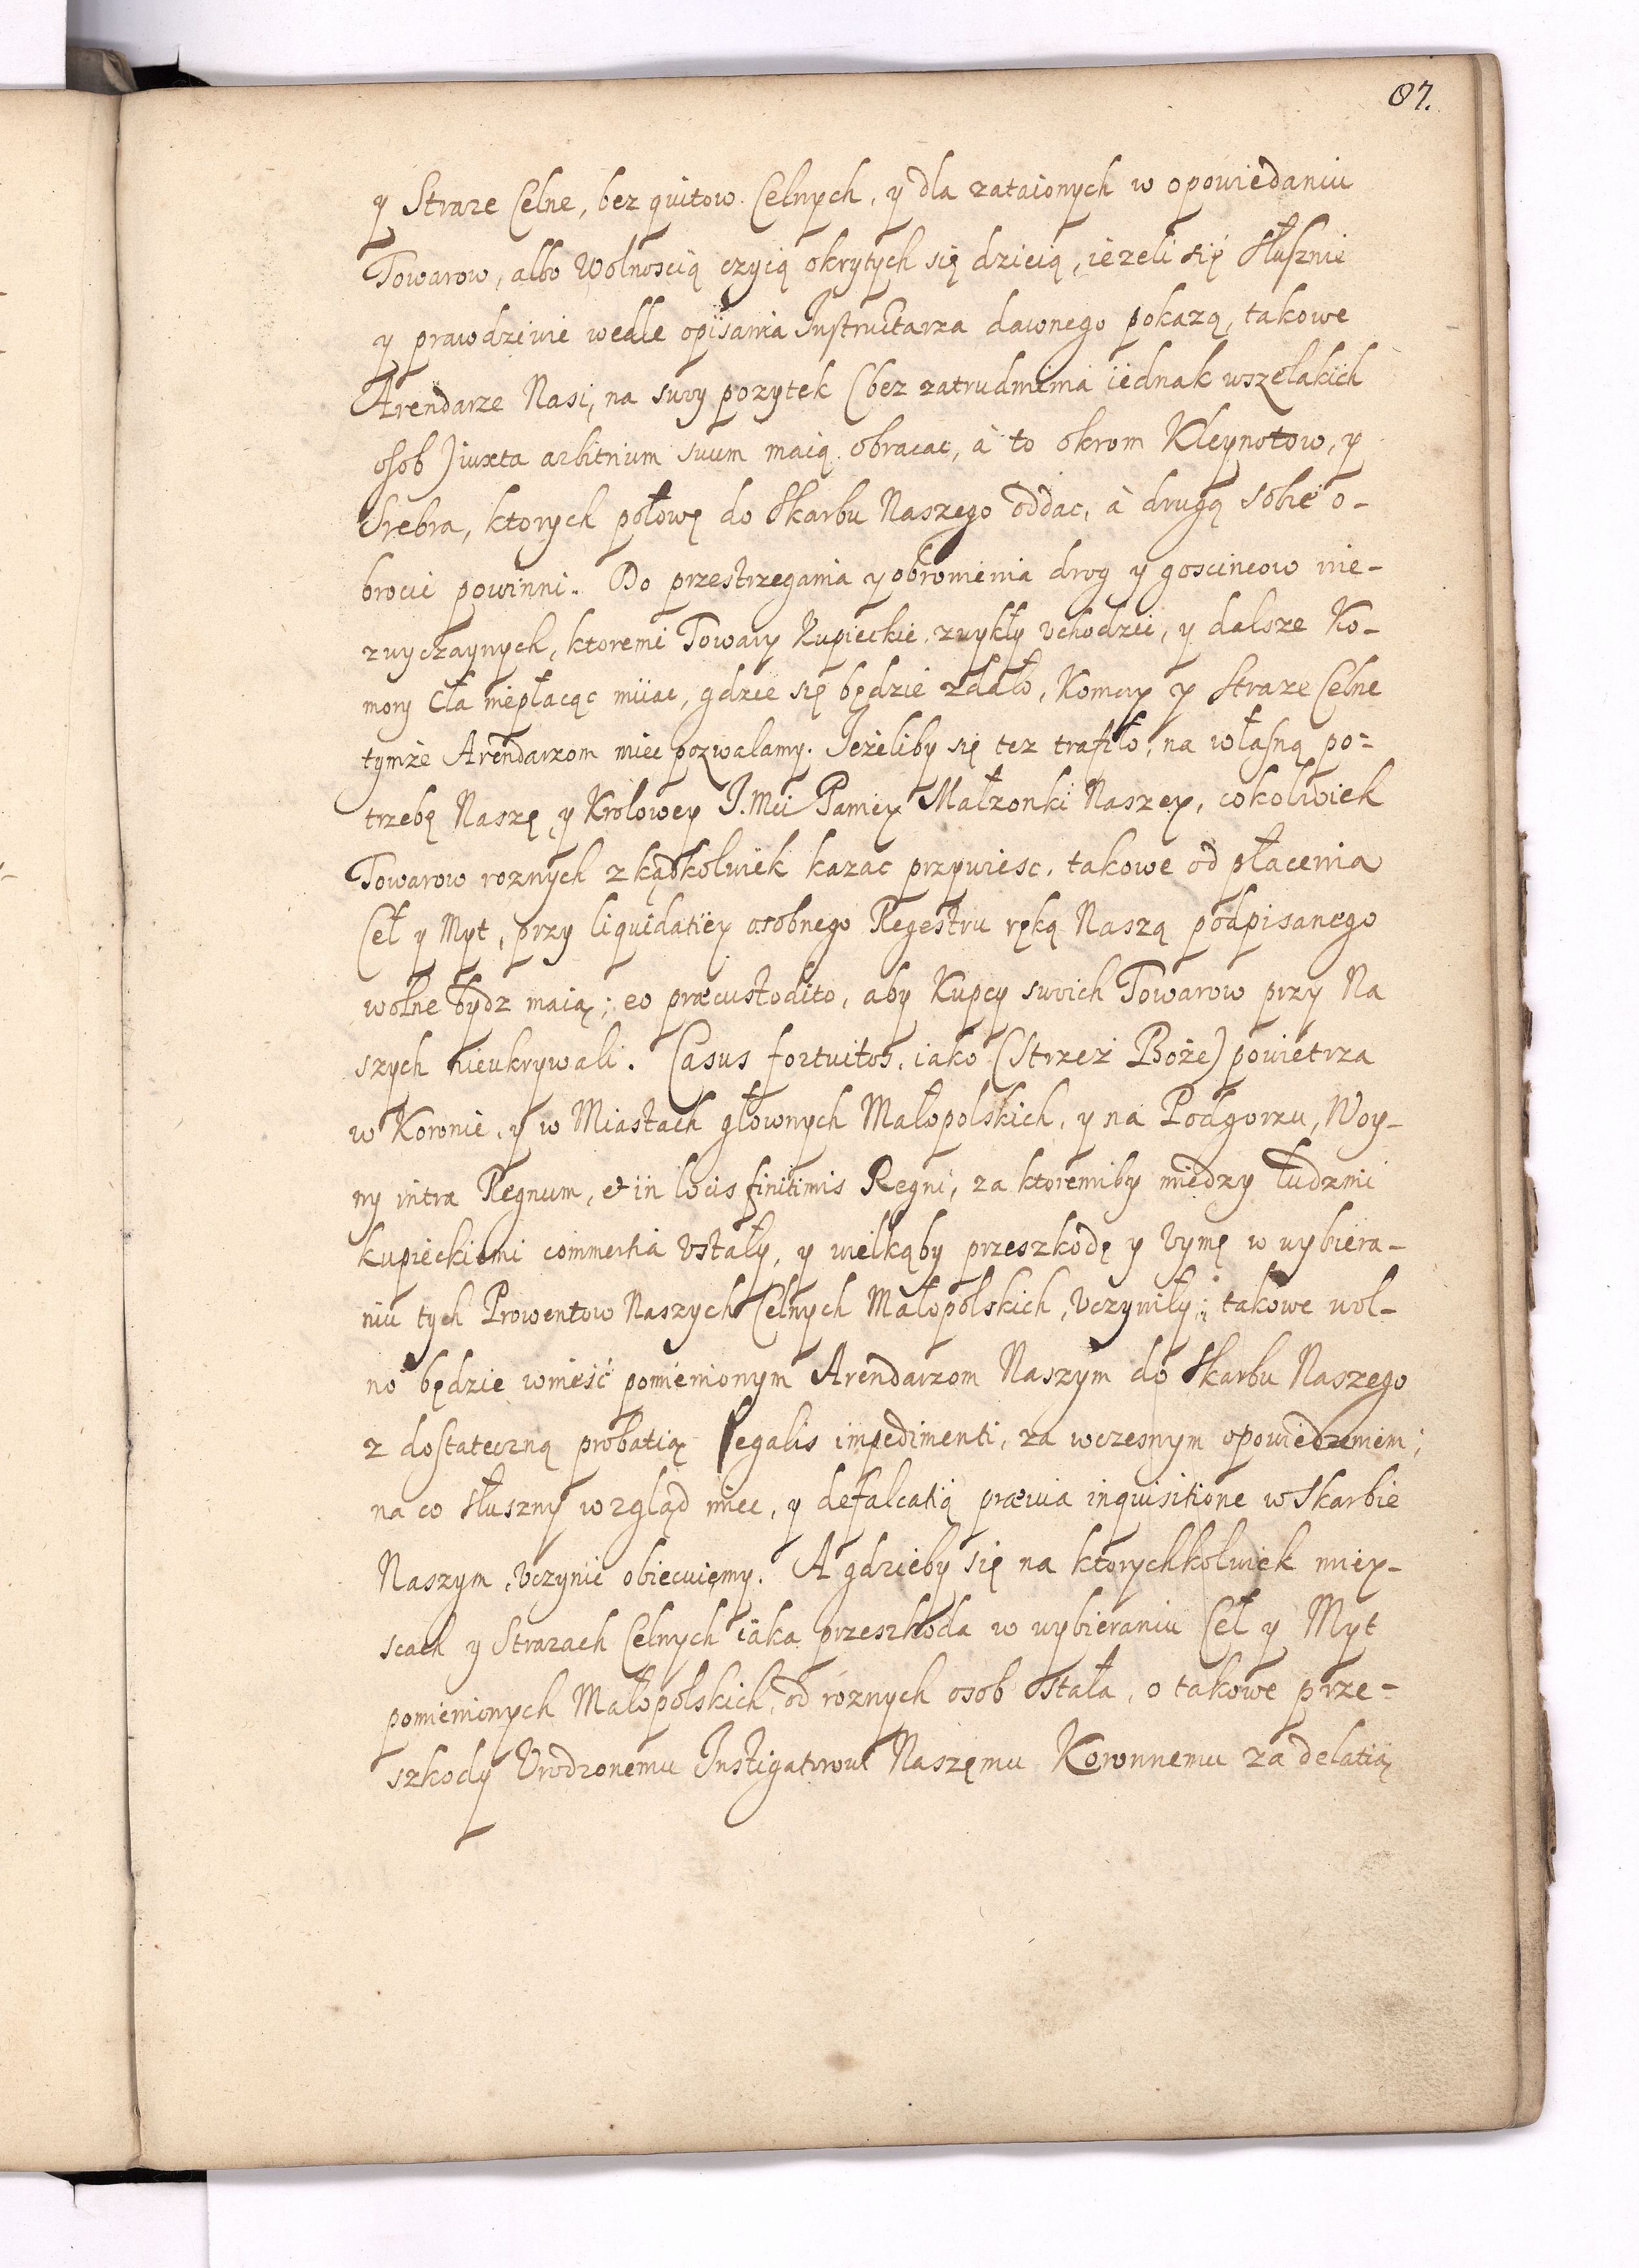 87.
y Straze Celne, bez quitow Celnych, y dla zataionych w opowiedaniu
Towarow, albo Wolnoscią czyią okrytych się dzieią, ieżeli się słusznie
y prawdziwie wedle opisania Instructarza dawnego pokazą, takowe
Arendarze Nasi, na swoy pozytek (bez zatrudnienia iednak wszelakich
osob) iuxta arbitrium suum maią obracac, à to okrom Kleynotow, y
Srebra, ktorych połowę do Skarbu Naszego oddac, à drugą sobie o-
brocic powinni. Do przestrzegania y obronienia drog y goscincow nie-
zwyczaynych, ktoremi Towary Kupieckie zwykły vchodzic, y dalsze Ko-
mory Cła niepłacąc miiac, gdzie się będzie zdało, Komory y Straze Celne
tymże Arendarzom miec pozwalamy. Jeżeliby się tez trafiło, na własną po-
trzebę Naszę, y Krolowey J. Mci Paniey Małzonki Naszey, cokolwiek
Towarow roznych zkądkolwiek kazac przywiesc, takowe od płacenia
Ceł y Myt, przy liquidatiey osobnego Regestru ręką Naszą podpisanego
wolne bydz maią; eo præcustodito, aby Kupcy swoich Towarow przy Na
szych nieukrywali. Casus fortuitos, iako (Strzeż Boże) powietrza
w Koronie, y w Miastach głownych Małopolskich, y na Podgorzu, Woy-
ny intra Regnum, et in locis finitimis Regni, za ktoremiby między ludzmi
kupieckiemi commertia vstały, y wielkąby przeszkodę y vymę w wybiera-
niu tych Prowentow Naszych Celnych Małopolskich, vczyniły; takowe wol-
no będzie wnieść pomienionym Arendarzom Naszym do Skarbu Naszego
z dostateczną probatią legalis impedimenti, za wczesnym opowiedzeniem;
na co słuszny wzgląd miec, y defalcatią prævia inquisitione w Skarbie
Naszym, vczynic obiecuiemy. A gdzieby się na ktorychkolwiek miey-
scach y Strazach Celnych iaka przeszkoda w wybieraniu Ceł y Myt
pomienionych Małopolskich, od roznych osob stała, o takowe prze-
szkody Vrodzonemu Instigatorowi Naszemu Koronnemu za delatią